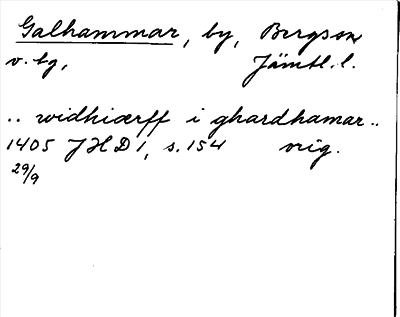 Galhammar, by, Bergs sn
v. tg, Jämtl. l.
.. widhiærff i ghardhamar ..
1405 JHD 1, s. 154 orig.
29/9